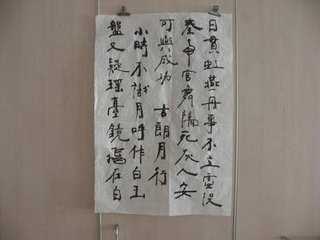 日貫虹燕丹事不立虛沒
秦帝宮舞陽死灰人安
可與成功 古朗月行
小時不識月呼作白玉
盤又疑瑤臺鏡飛在白